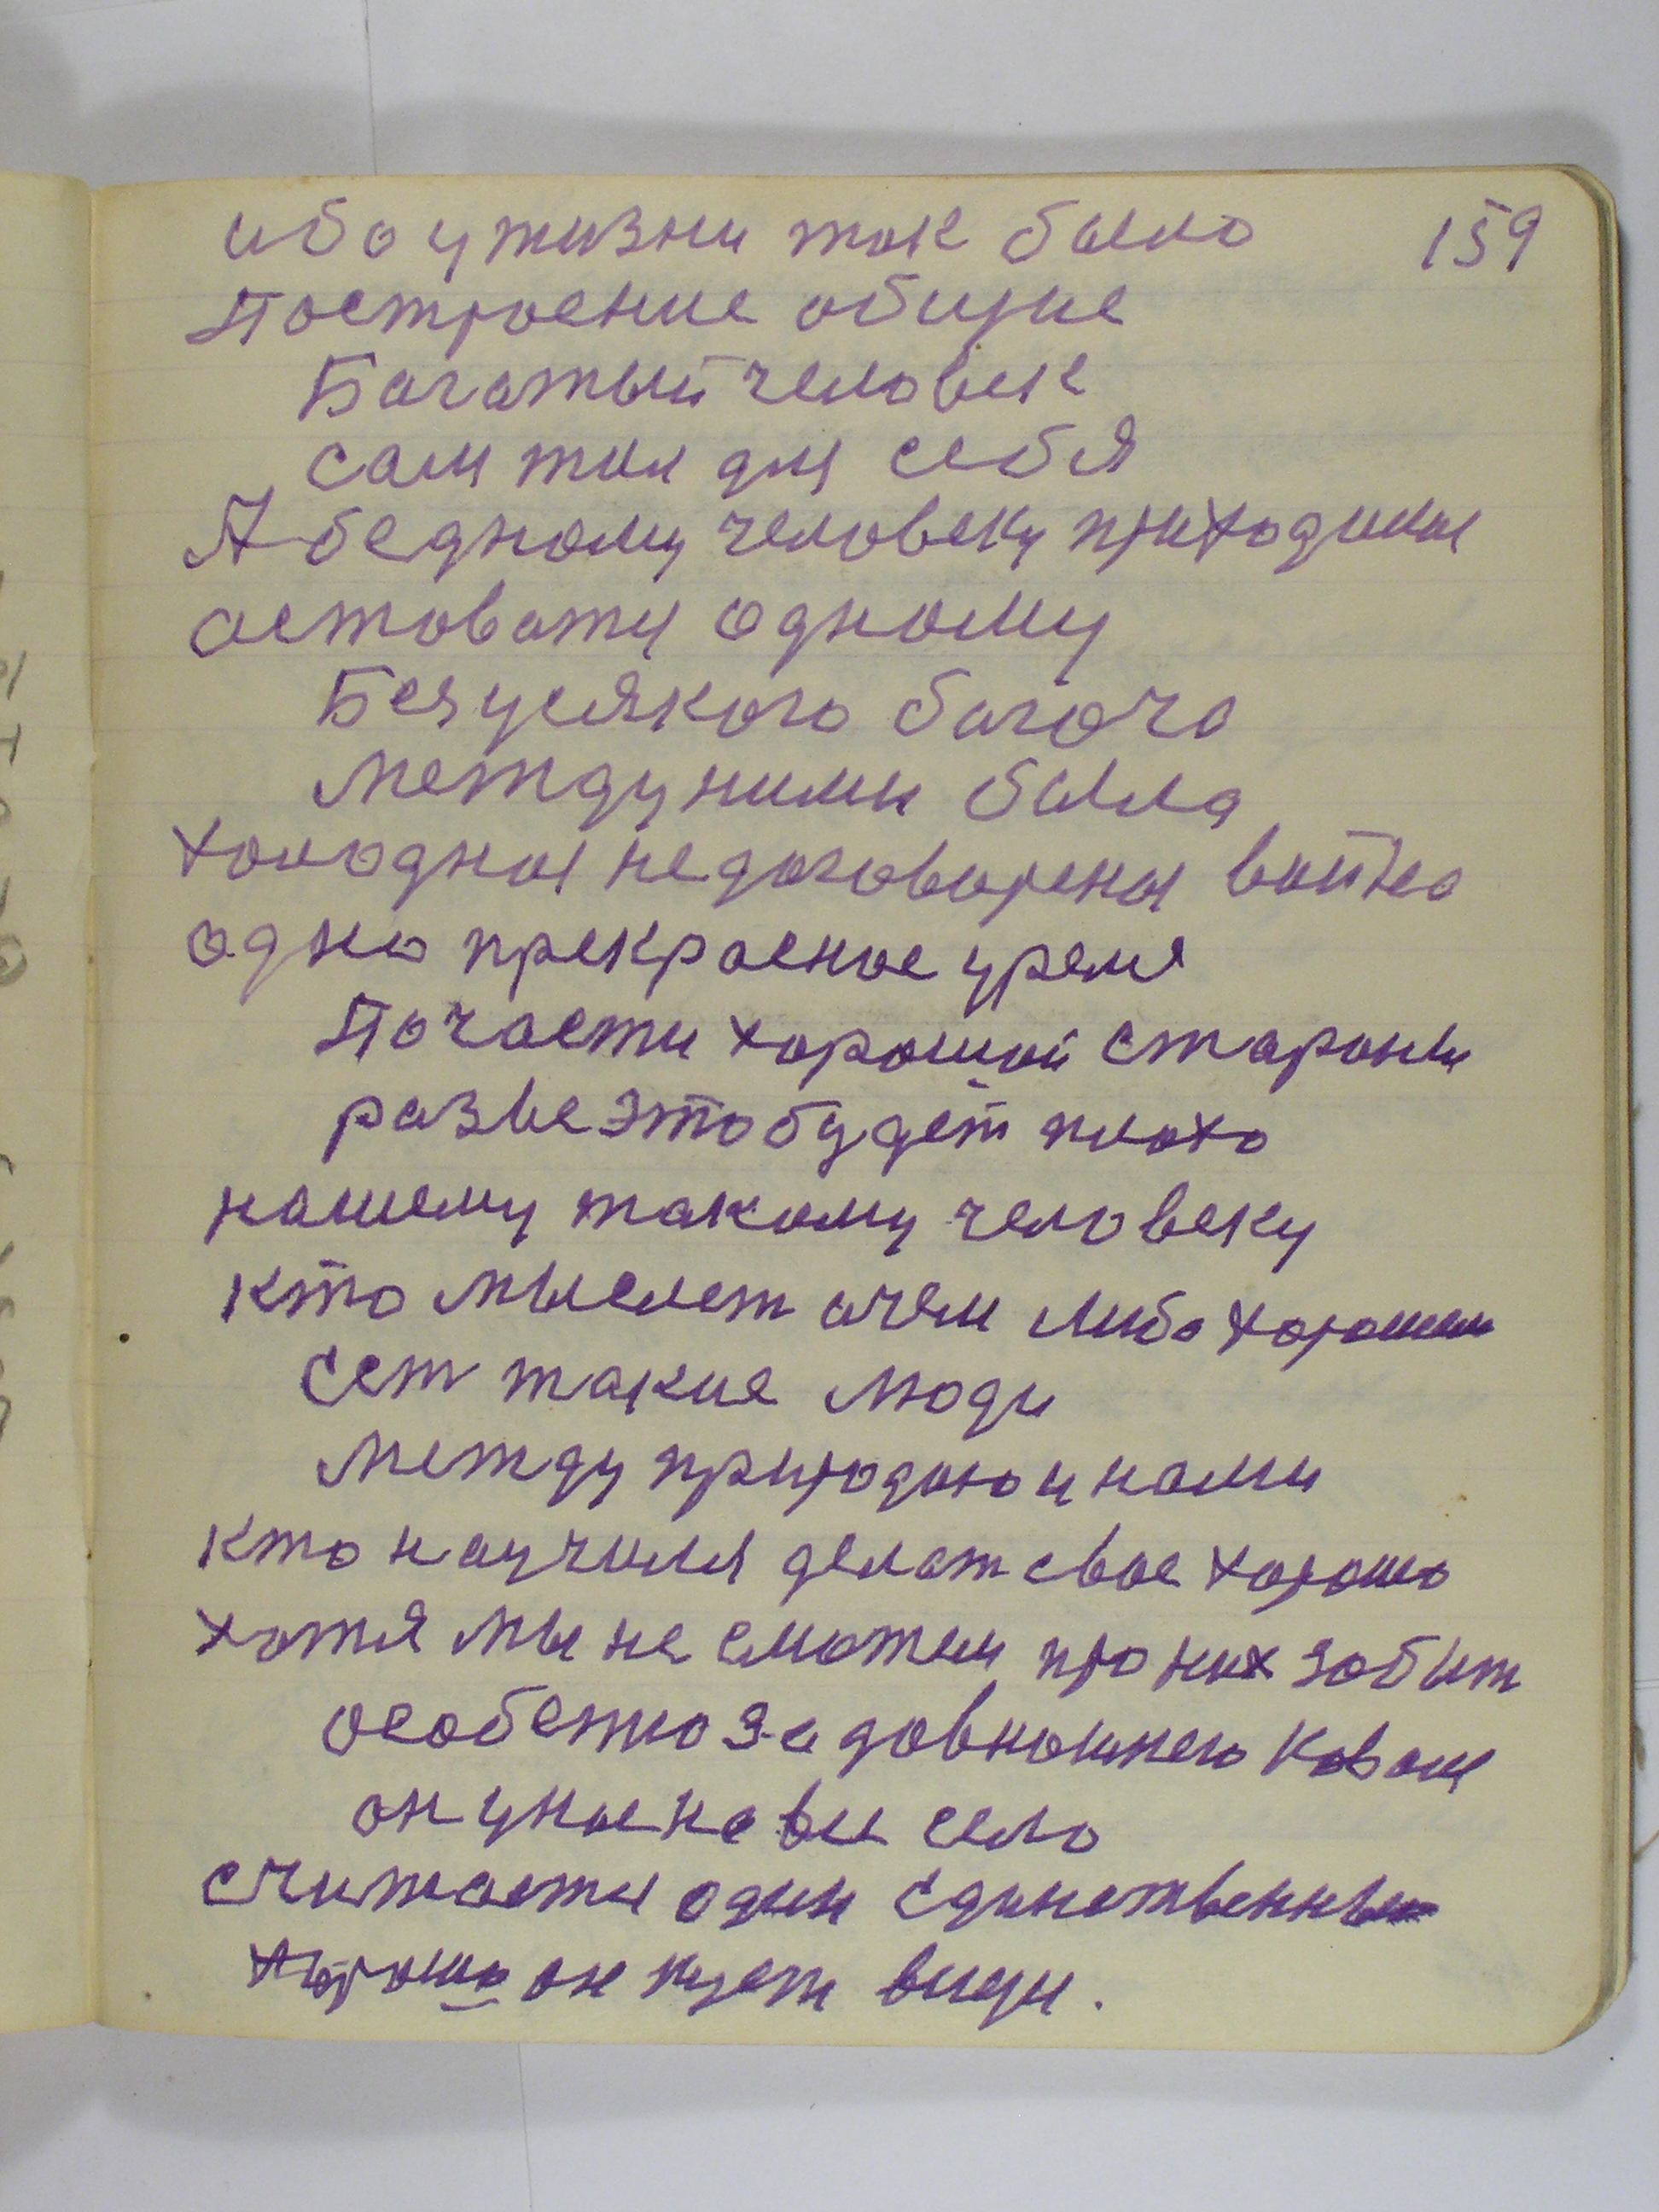 ибо у жизни так было 159
Построение общие
Багатый человек
сам жил для себя
А бедному человеку приходилося
астоватця одному
Без усякого багоча
Между ними была
холодная недоговореная вайна
одно прекрасное уремя
По части хорошой стараны
разве это будет плохо
нашему такому человеку
кто мыслет очем либо хорошим
Сет такие люди
Между природаю и нами
кто научился делат свое хорошо
хотя мы не сможем про них забит
особено за довношнею
он у нас на все село
считается один единственный
хорошо он пузат види.